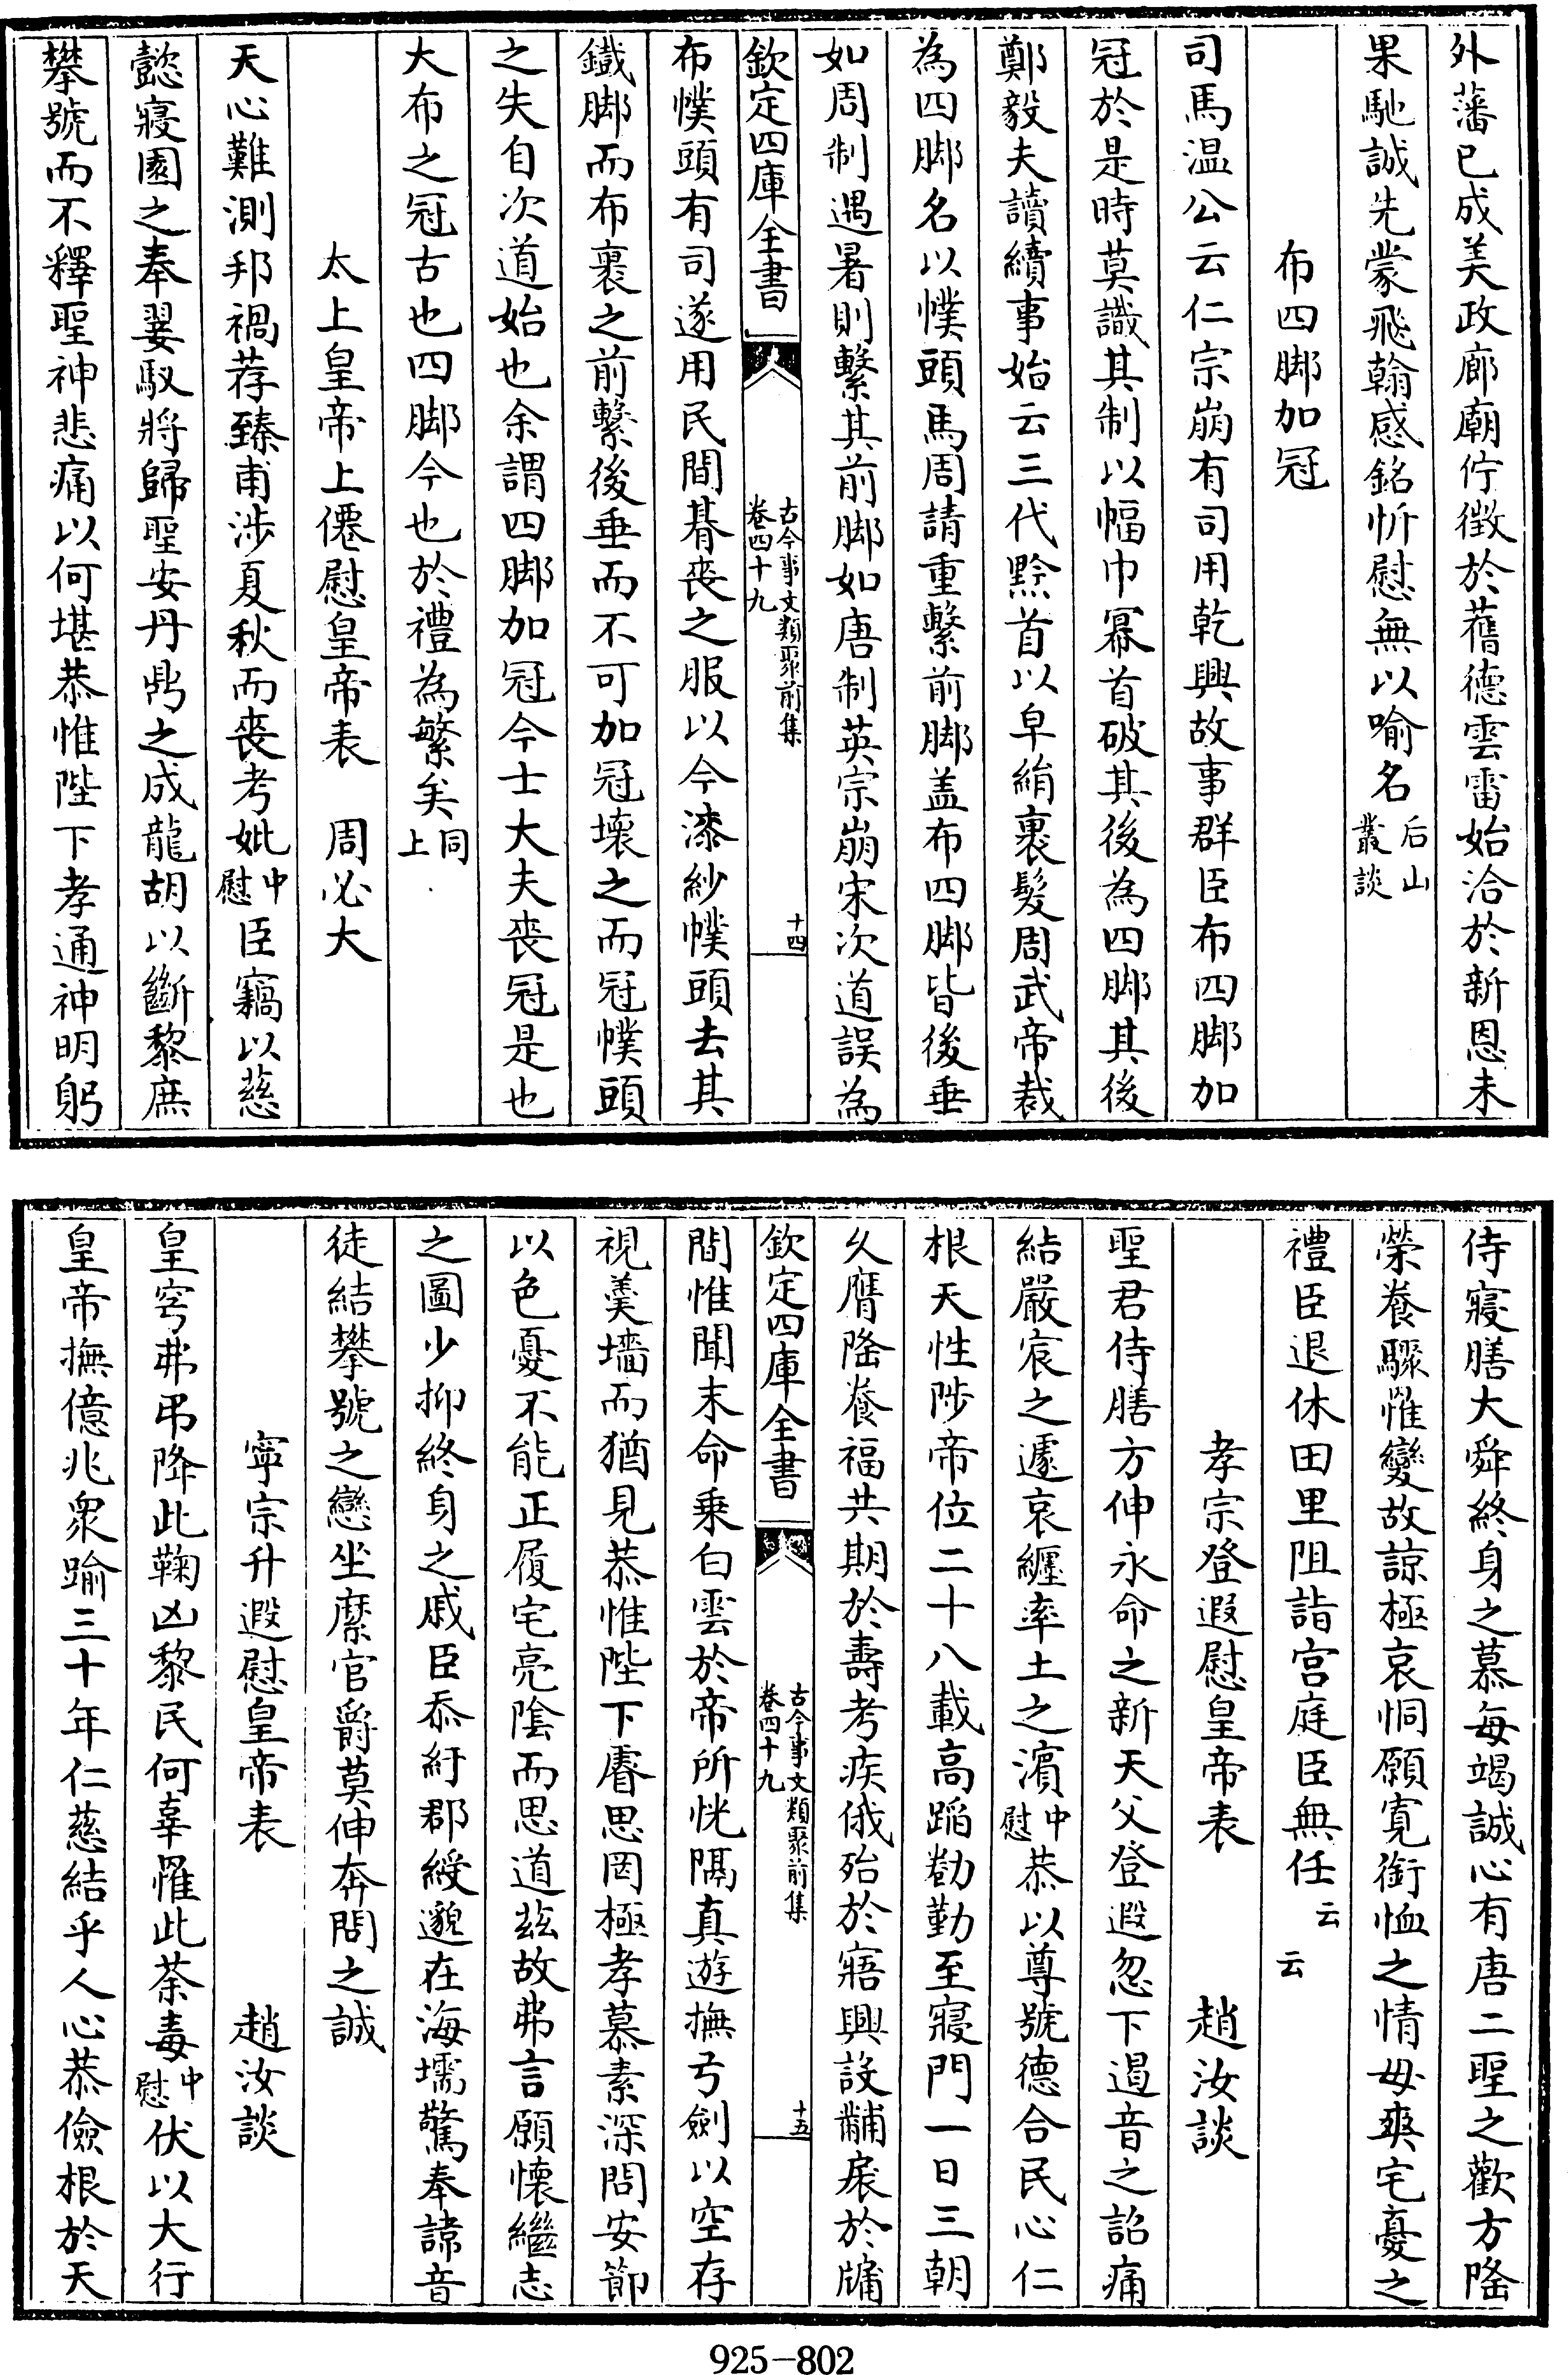 外藩已成美政廊廟佇徵於舊德雲雷始洽於新恩未
果馳誠先蒙飛翰感銘忻慰無以喻名后山叢談
布四脚加冠
司馬温公云仁宗崩有司用乾興故事群臣布四脚加
冠於是時莫識其制以幅巾冪首破其後為四脚其後
鄭毅夫讀續事始云三代黔首以皁絹裹髮周武帝裁
為四脚名以幞頭馬周請重繫前脚盖布四脚皆後垂
如周制遇暑則繫其前脚如唐制英宗崩宋次道誤為
欽定四庫全書
古今事文類聚前集
卷四十九
十四
布幞頭有司遂用民間朞喪之服以今漆紗幞頭去其
鐵脚而布裹之前繫後垂而不可加冠壞之而冠幞頭
之失自次道始也余謂四脚加冠今士大夫喪冠是也
大布之冠古也四脚今也於禮為繁矣同上
太上皇帝上僊慰皇帝表　周必大
天心難測邦禍荐臻甫涉夏秋而喪考妣中慰臣竊以慈
懿寢園之奉翣馭將歸聖安丹鼎之成龍胡以斷黎庶
攀號而不釋聖神悲痛以何堪恭惟陛下孝通神明躬
侍寢膳大舜終身之慕每竭誠心有唐二聖之歡方隆
榮養驟罹變故諒極哀恫願寛銜恤之情毋爽宅憂之
禮臣退休田里阻詣宫庭臣無任云云
孝宗登遐慰皇帝表　趙汝談
聖君侍膳方伸永命之新天父登遐忽下遏音之詔痛
結嚴宸之遽哀纒率土之濱中慰恭以尊號德合民心仁
根天性陟帝位二十八載高蹈勌勤至寢門一日三朝
乆膺隆養福共期於壽考疾俄殆於寤興設黼扆於牖
欽定四庫全書
古今事文類聚前集
卷四十九
十五
間惟聞末命乗白雲於帝所恍隔真遊撫弓劍以空存
視羮墻而猶見恭惟陛下睿思罔極孝慕素深問安節
以色憂不能正履宅亮隂而思道兹故弗言願懷繼志
之圖少抑終身之戚臣忝紆郡綬邈在海壖驚奉諱音
徒結攀號之戀坐縻官爵莫伸奔問之誠
寧宗升遐慰皇帝表　趙汝談
皇穹弗弔降此鞠凶黎民何辜罹此荼毒中慰伏以大行
皇帝撫億兆衆踰三十年仁慈結乎人心恭儉根於天
925-802